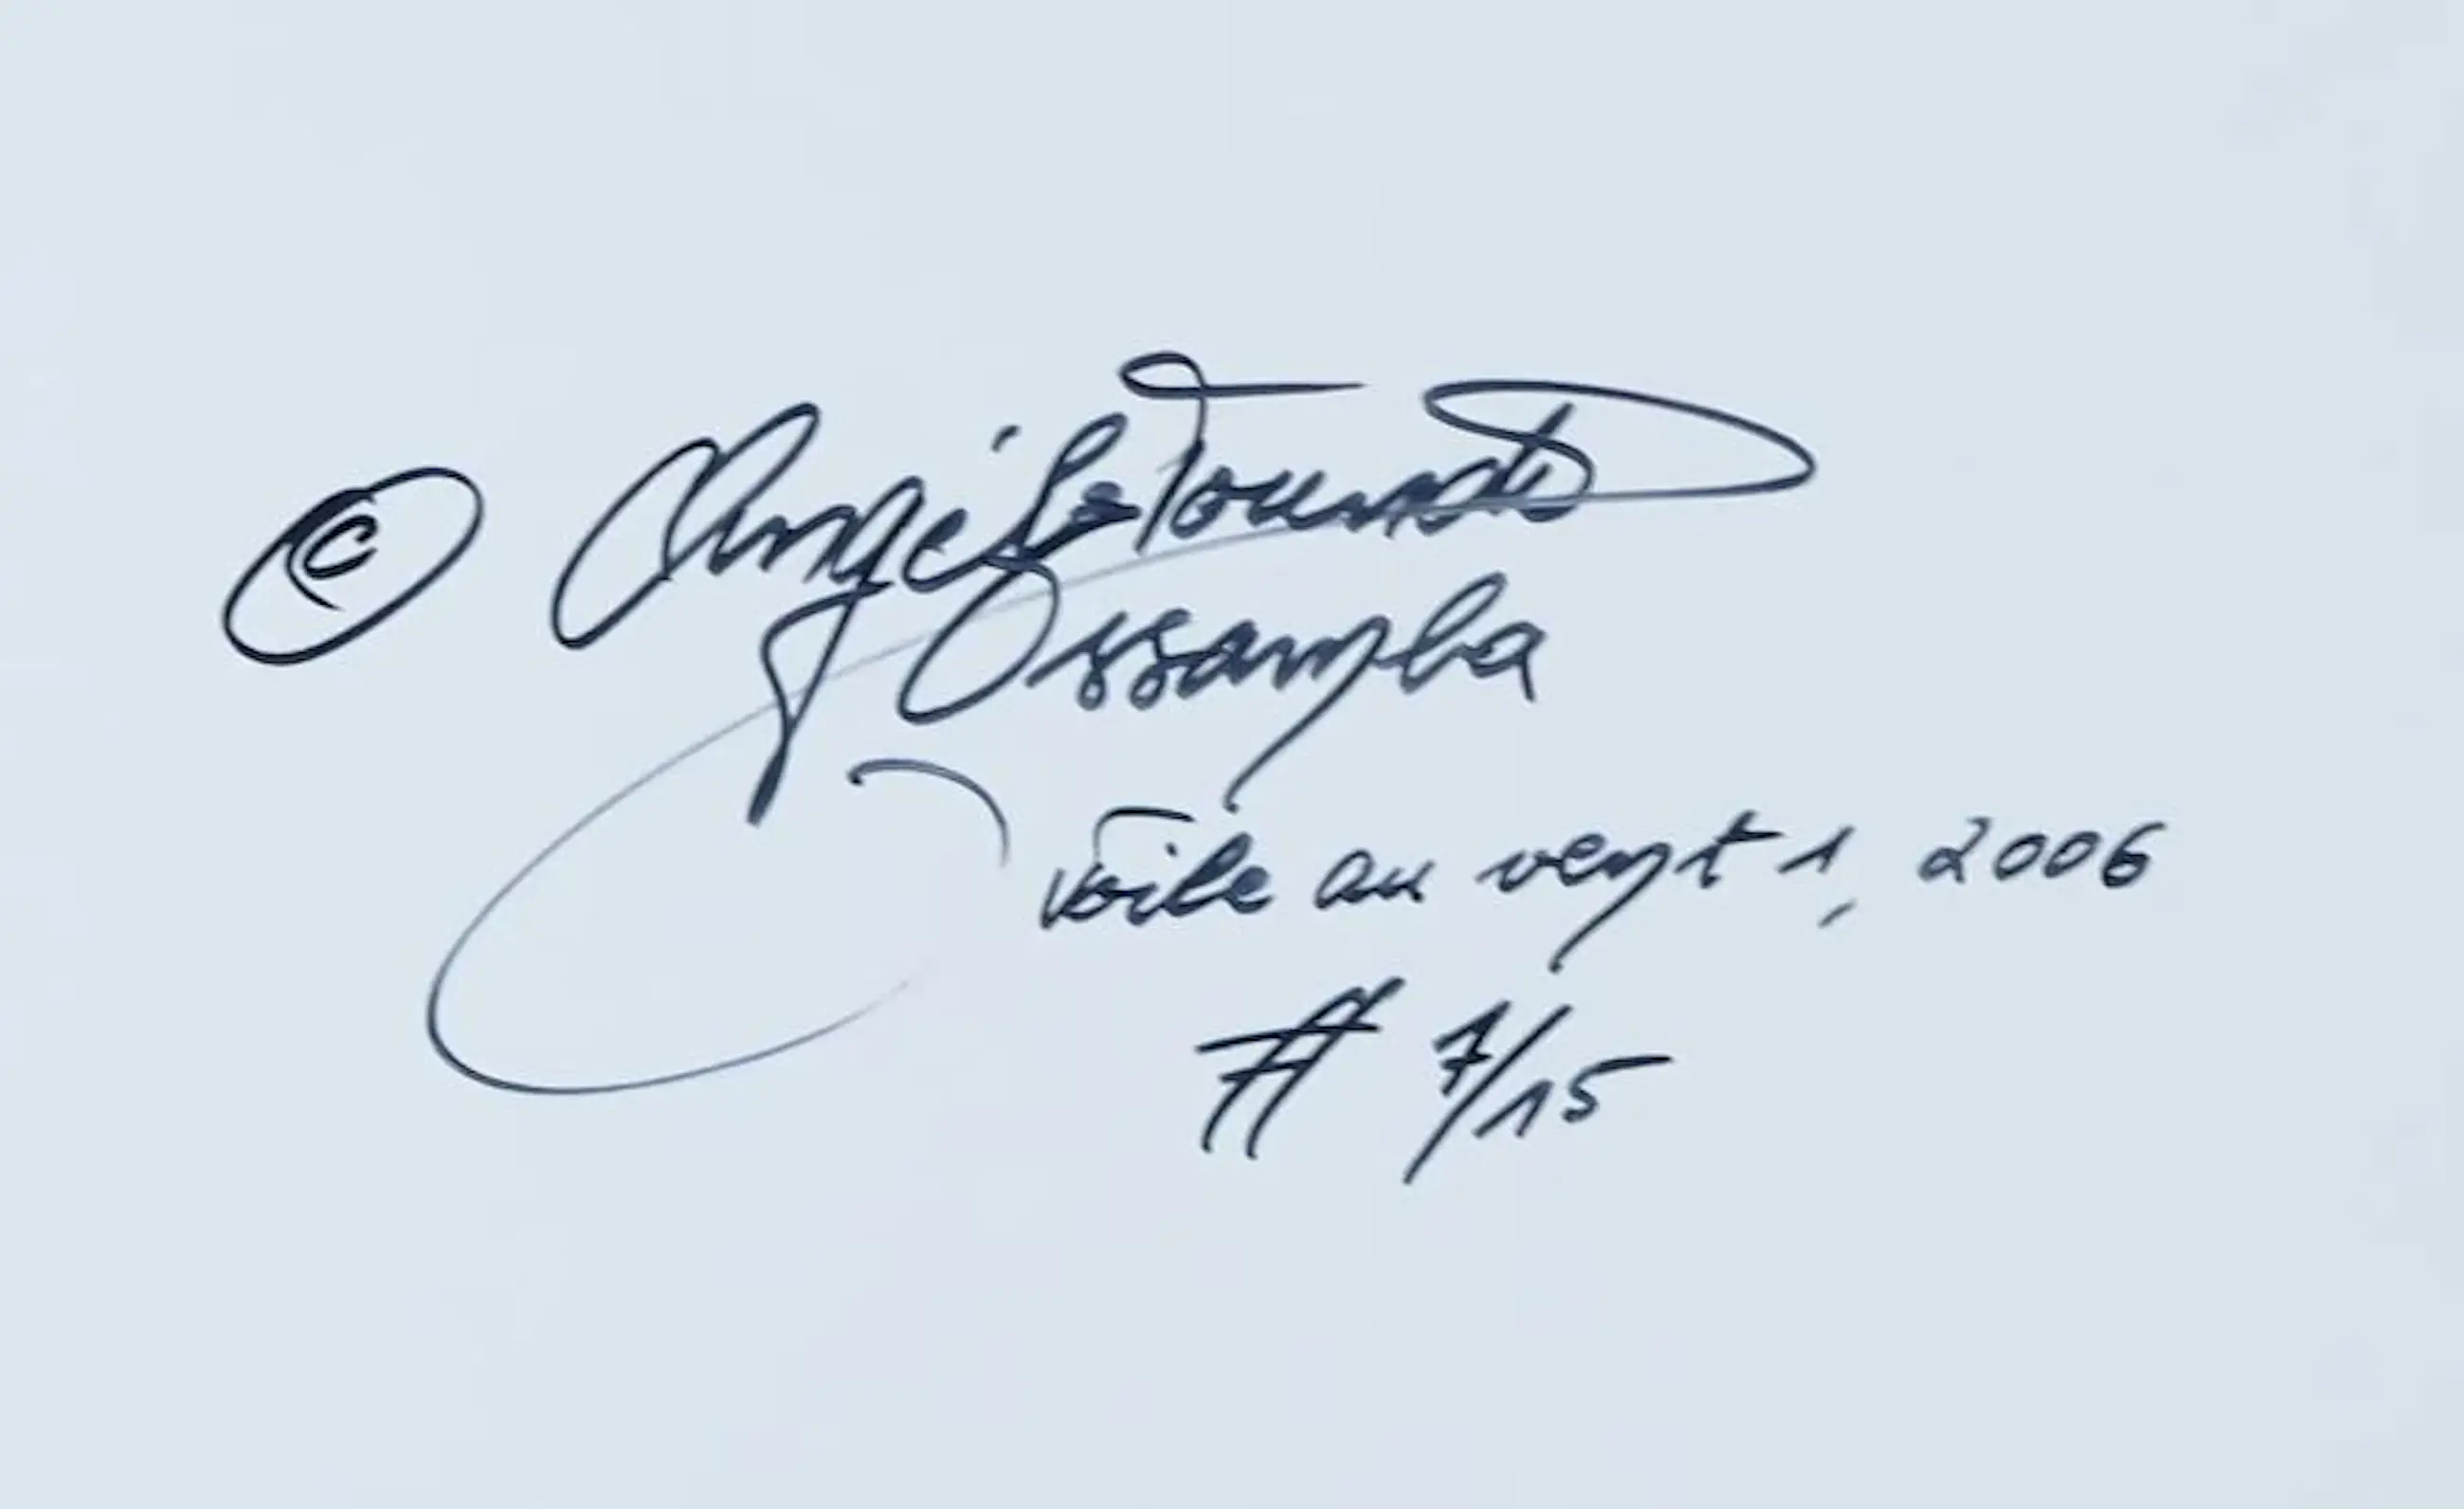 © Angèle Etoundi
Essamba
Voile au vent 1, 2006
# 7/15